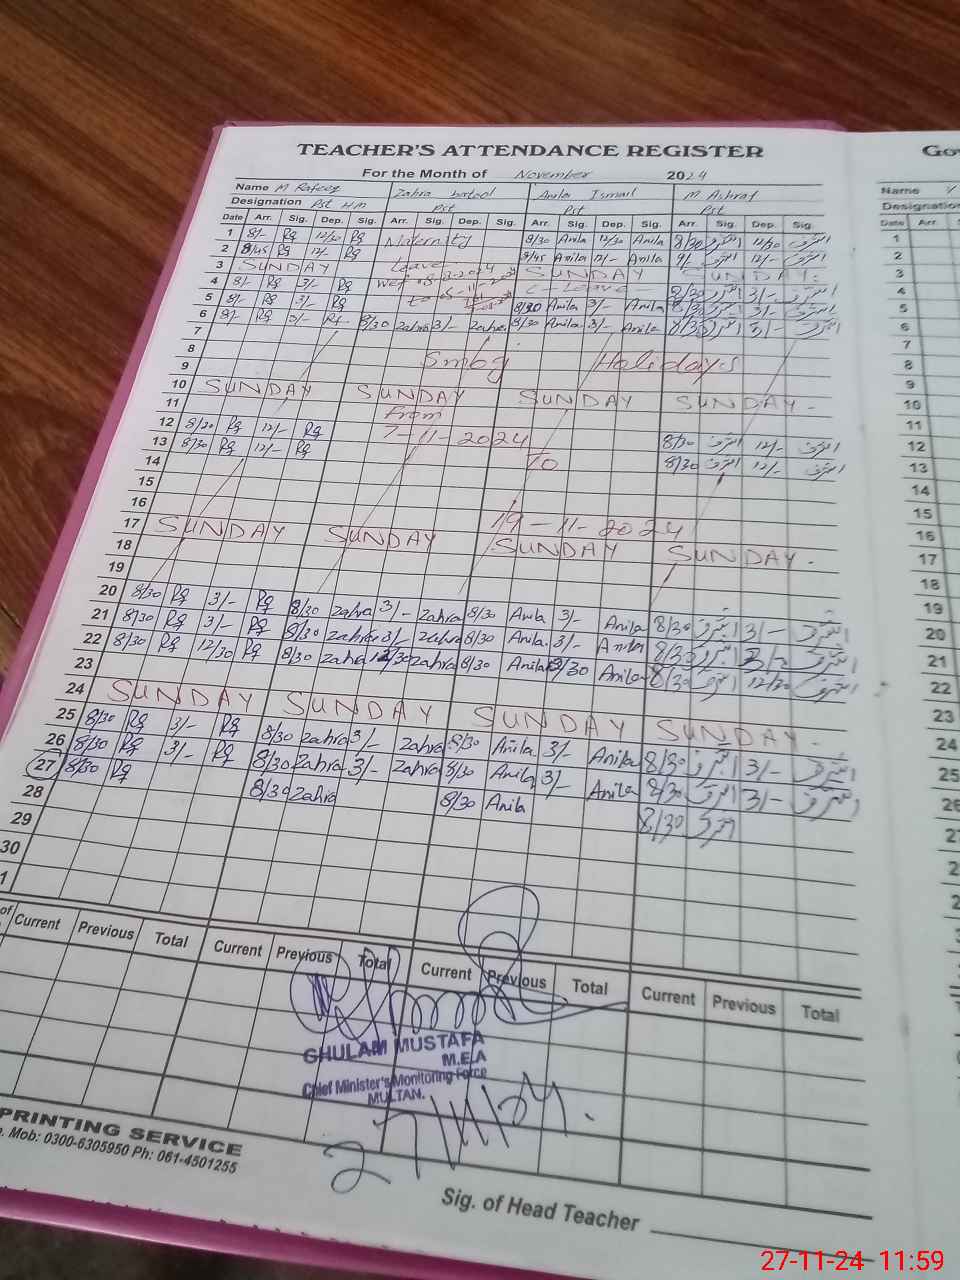 TEACHER'S ATTENDANCE REGISTER
Gov
For the Month of November 2024
Name M Rafeeq Zahra batool Anila Ismail M Ashraf
Name
Designation Pst HM Pst Pst Pst
Designation
Date Arr. Sig. Dep. Sig. Arr. Sig. Dep. Sig. Arr. Sig. Dep. Sig. Arr. Sig. Dep. Sig.
Date Arr S
1 8/- Rq 12/30 Rq Maternity 8/30 Anila 12/30 Anila 8/30 اشرف 12/30 اشرف
2 8/45 Rq 12/- Rq Leave 8/45 Anila 12/- Anila 9/- اشرف 12/- اشرف
3 SUNDAY SUNDAY SUNDAY
4 8/- Rq 3/- Rq C-Leave 8/30 اشرف 3/- اشرف
5 8/- Rq 3/- Rq 8/30 Anila 3/- Anila 8/30 اشرف 3/- اشرف
6 8/- Rq 3/- Rq 8/30 Zahra 3/- Zahra 8/30 Anila 3/- Anila 8/30 اشرف 3/- اشرف
7
8 Smog Holidays
9
10 SUNDAY SUNDAY SUNDAY SUNDAY
11 From
12 8/30 Rq 12/- Rq 7-11-2024 8/30 اشرف 12/- اشرف
13 8/30 Rq 12/- Rq To 8/30 اشرف 12/- اشرف
14
15
16 19-11-2024
17 SUNDAY SUNDAY SUNDAY SUNDAY
18
19
20 8/30 Rq 3/- Rq 8/30 Zahra 3/- Zahra 8/30 Anila 3/- Anila 8/30 اشرف 3/- اشرف
21 8/30 Rq 3/- Rq 8/30 Zahra 3/- Zahra 8/30 Anila 3/- Anila 8/30 اشرف 3/- اشرف
22 8/30 Rq 12/30 Rq 8/30 Zahra 12/30 Zahra 8/30 Anila Anila 8/30 اشرف 12/30 اشرف
23
24 SUNDAY SUNDAY SUNDAY SUNDAY
25 8/30 Rq 3/- Rq 8/30 Zahra 3/- Zahra 8/30 Anila 3/- Anila 8/30 اشرف 3/- اشرف
26 8/30 Rq 3/- Rq 8/30 Zahra 3/- Zahra 8/30 Anila 3/- Anila 8/30 اشرف 3/- اشرف
27 8/30 Rq 8/30 Zahra 8/30 Anila 8/30 اشرف
28
29
30
1
1
2
3
4
5
6
7
8
9
10
11
12
13
14
15
16
17
18
19
20
21
22
23
24
25
26
of Current Previous Total Current Previous Total Current Previous Total Current Previous Total
GHULAM MUSTAFA
M.E.A
Chief Minister's Monitoring Force
MULTAN.
27/11/24.
PRINTING SERVICE
Mob: 0300-6305950 Ph: 061-4501255
Sig. of Head Teacher
27-11-24 11:59